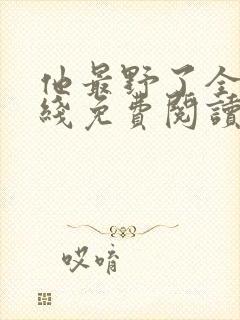 他最野了全
綫免費閱讀
哎唷